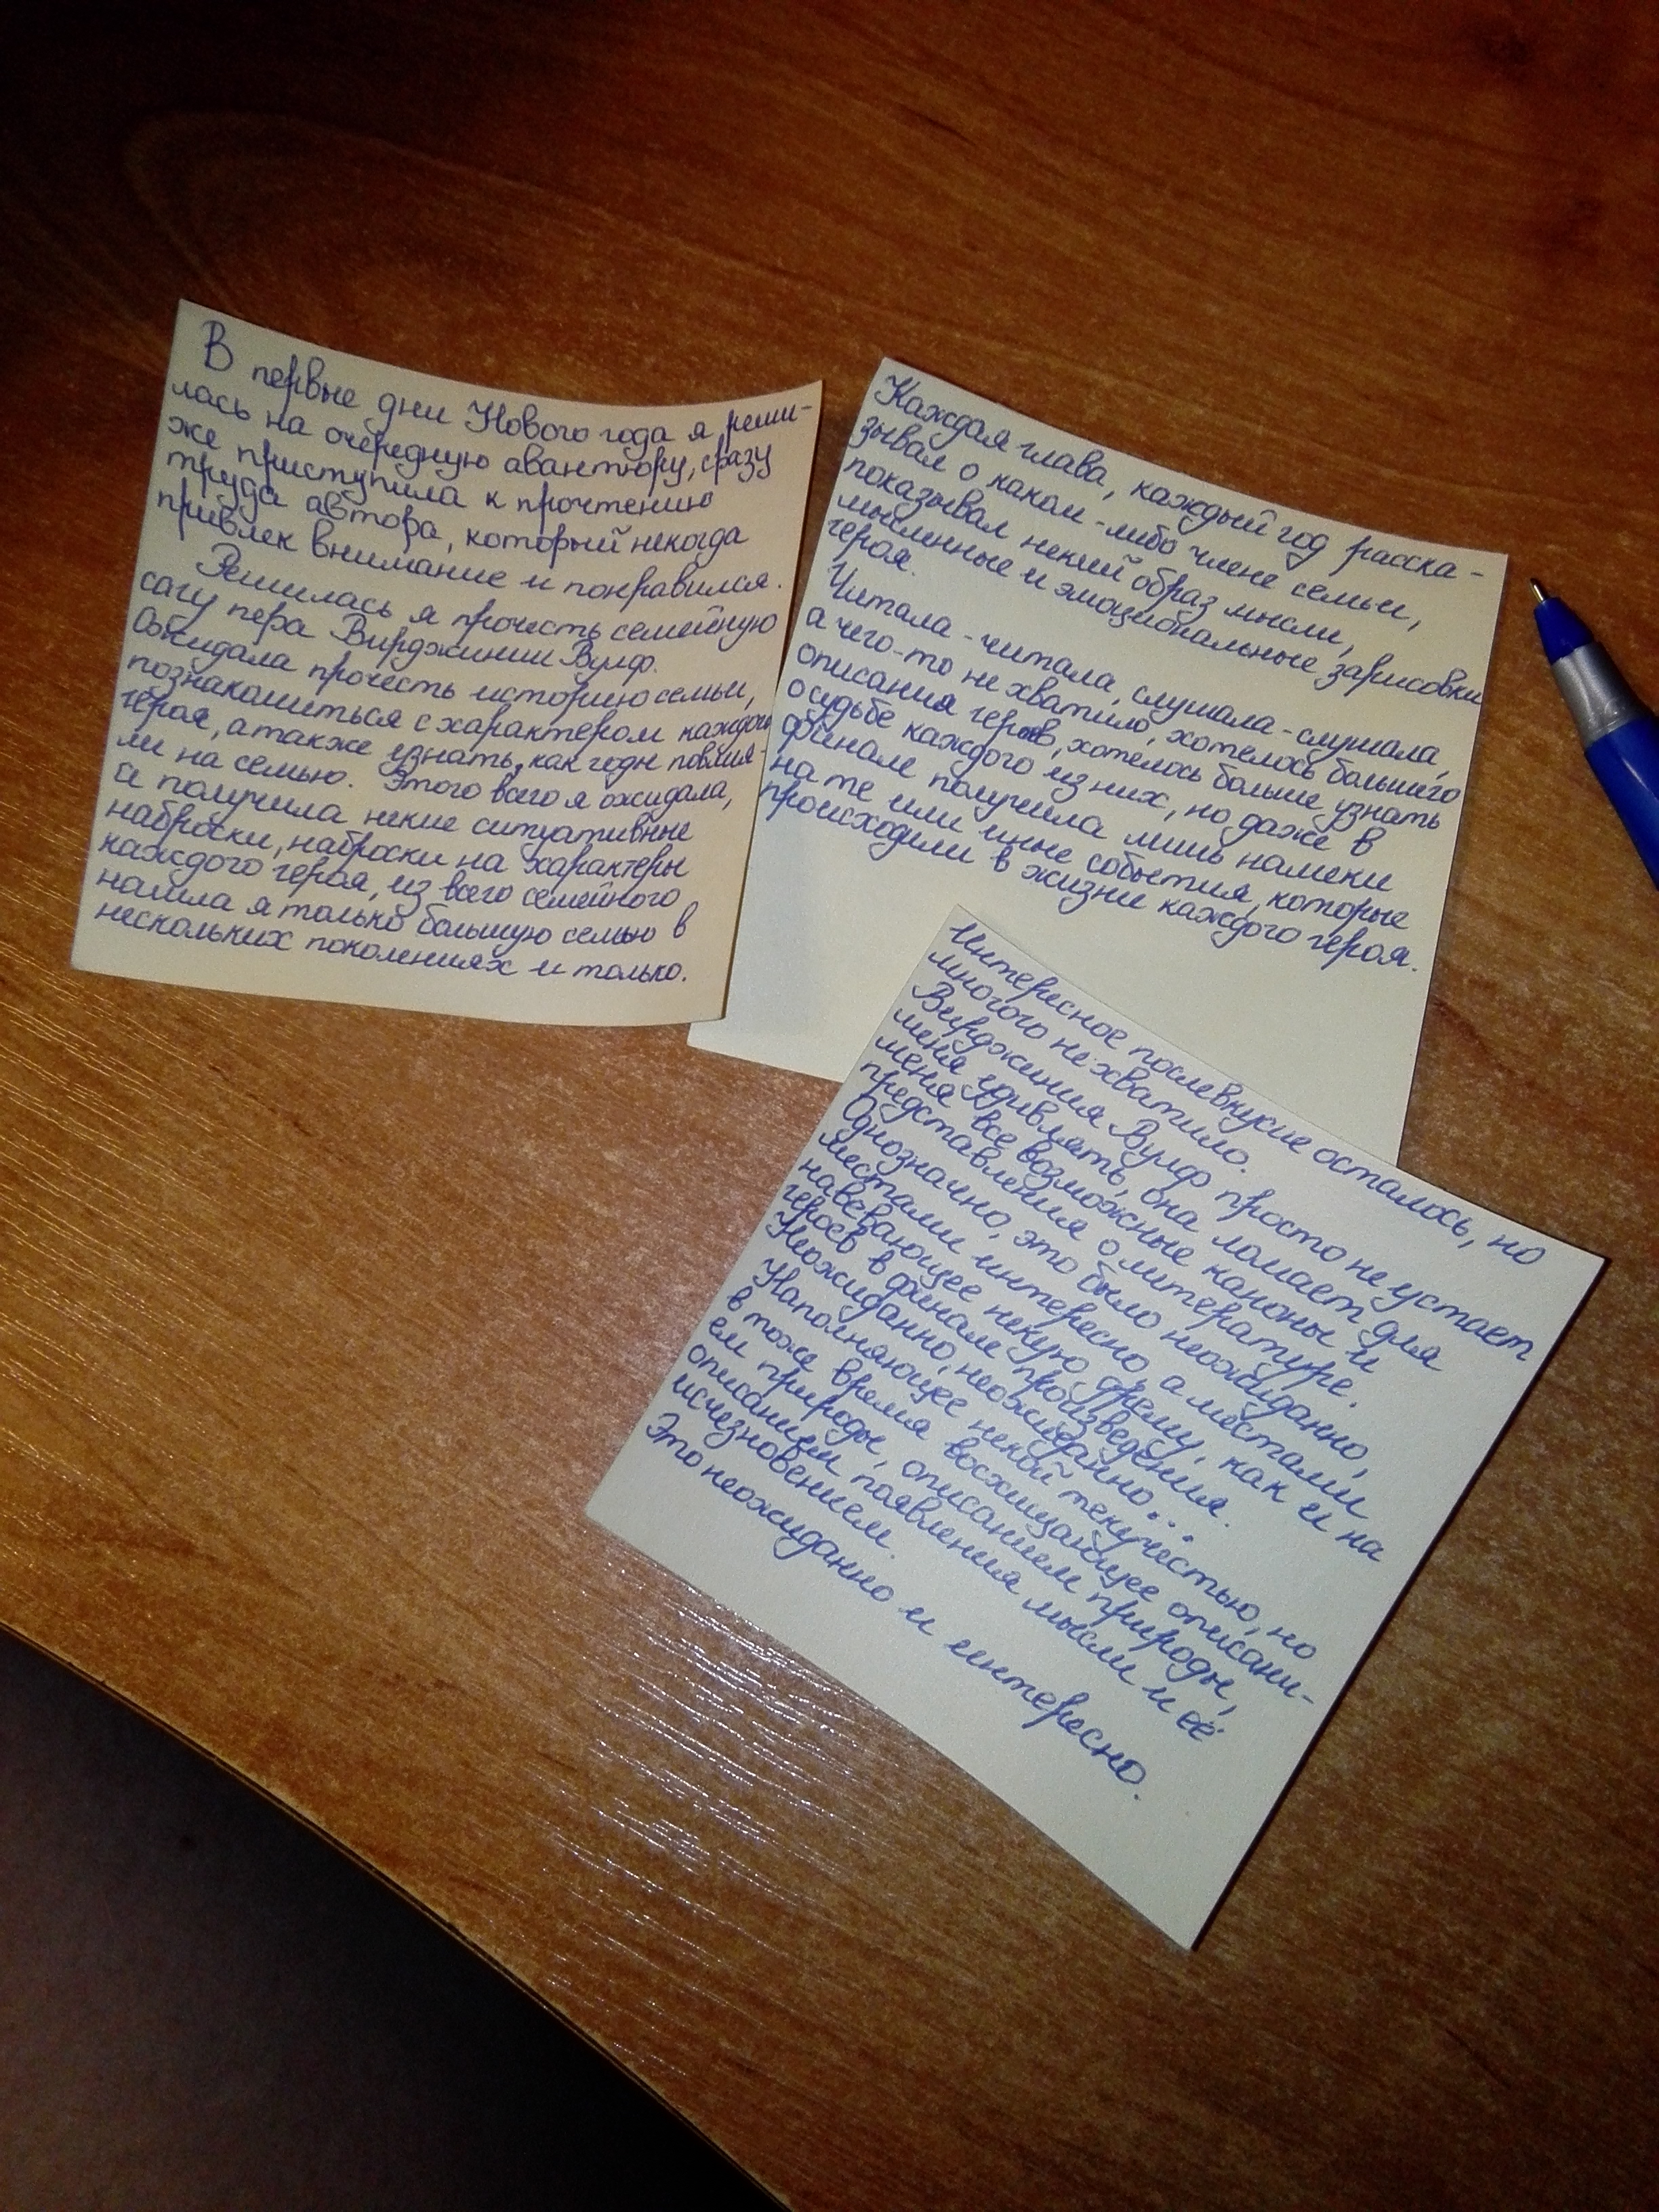 В первые дни Нового года я реши-
лась на очередную авантюру, сразу
же приступила к прочтению
труда автора, который некогда
привлек внимание и понравился.
Решилась я прочесть семейную
сагу пера Вирджинии Вулф.
Ожидала прочесть историю семьи,
познакомиться с характером каждого
героя, а также узнать, как годы повлия-
ли на семью. Этого всего я ожидала,
а получила некие ситуативные
наброски, наброски на характеры
каждого героя, из всего семейного
нашла я только большую семью в
нескольких поколениях и только.
Каждая глава, каждый год расска-
зывал о каком-либо члене семьи,
показывал некий образ мысли,
мысленные и эмоциональные зарисовки
героя.
Читала-читала, слушала-слушала,
а чего-то не хватило, хотелось большего
описания героев, хотелось больше узнать
о судьбе каждого из них, но даже в
финале получила лишь намеки
на те или иные события, которые
происходили в жизни каждого героя.
Интересное послевкусие осталось, но
многого не хватило.
Вирджиния Вулф просто не устает
меня удивлять, она ломает для
меня все возможные каноны и
представления о литературе.
Однозначно, это было неожиданно,
местами интересно, а местами
навевающее некую дрему, как и на
героев в финале произведения.
Неожиданно, неожиданно...
Наполняющее некой текучестью, но
в тоже время восхищающее описани-
ем природы, описанием природы,
описанием появления мысли и её
исчезновением.
Это неожиданно и интересно.